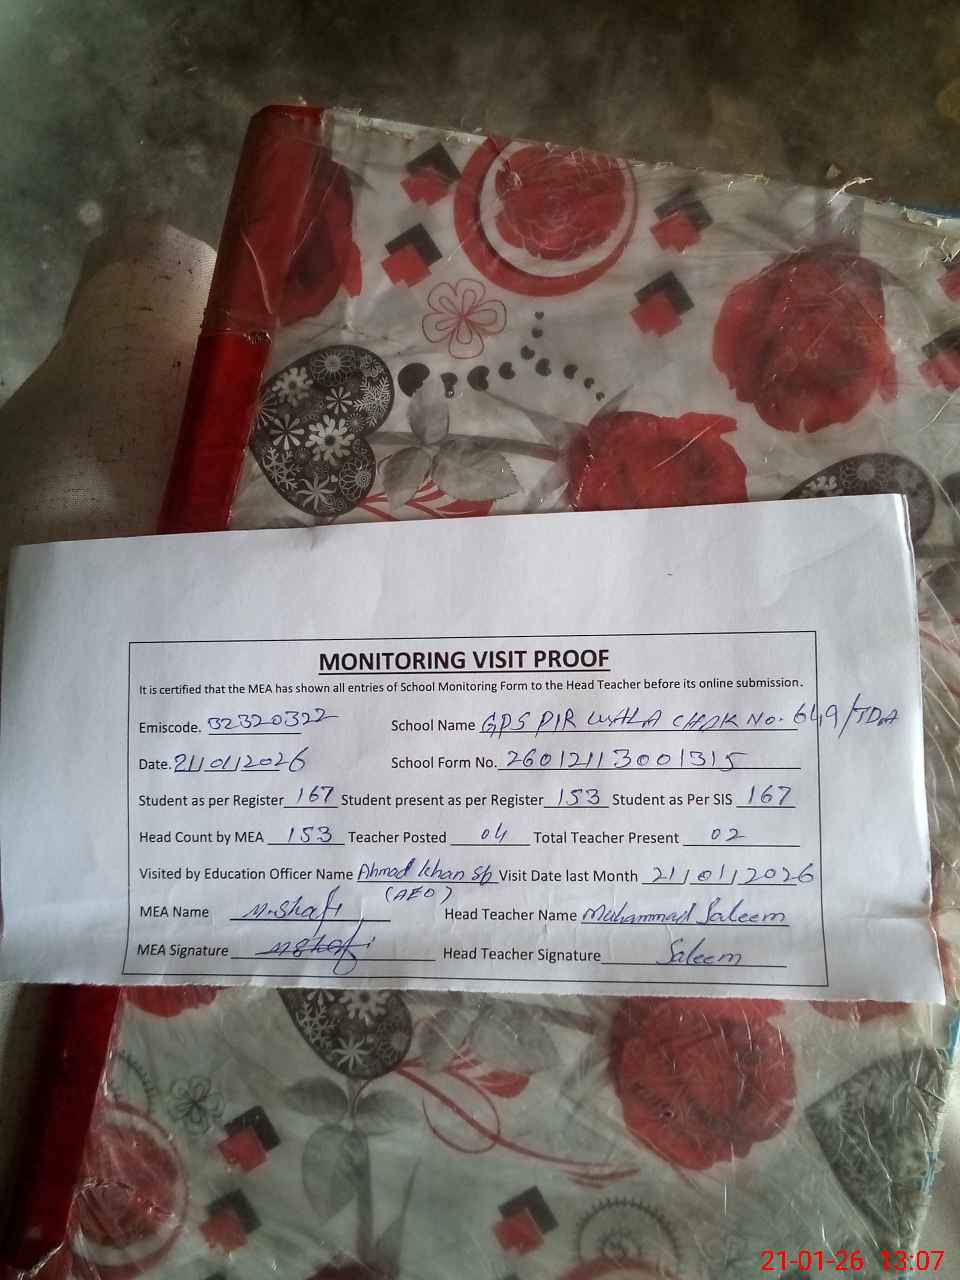 MONITORING VISIT PROOF
It is certified that the MEA has shown all entries of School Monitoring Form to the Head Teacher before its online submission.
Emiscode. 32320322 School Name GPS PIR WALA CHAK No. 649/TDA
Date. 21/01/2026 School Form No. 26012113001315
Student as per Register 167 Student present as per Register 153 Student as Per SIS 167
Head Count by MEA 153 Teacher Posted 04 Total Teacher Present 02
Visited by Education Officer Name Ahmad Khan Sb Visit Date last Month 21/01/2026
(AEO)
MEA Name M.Shafi Head Teacher Name Muhammad Saleem
MEA Signature MShafi Head Teacher Signature Saleem
21-01-26 13:07